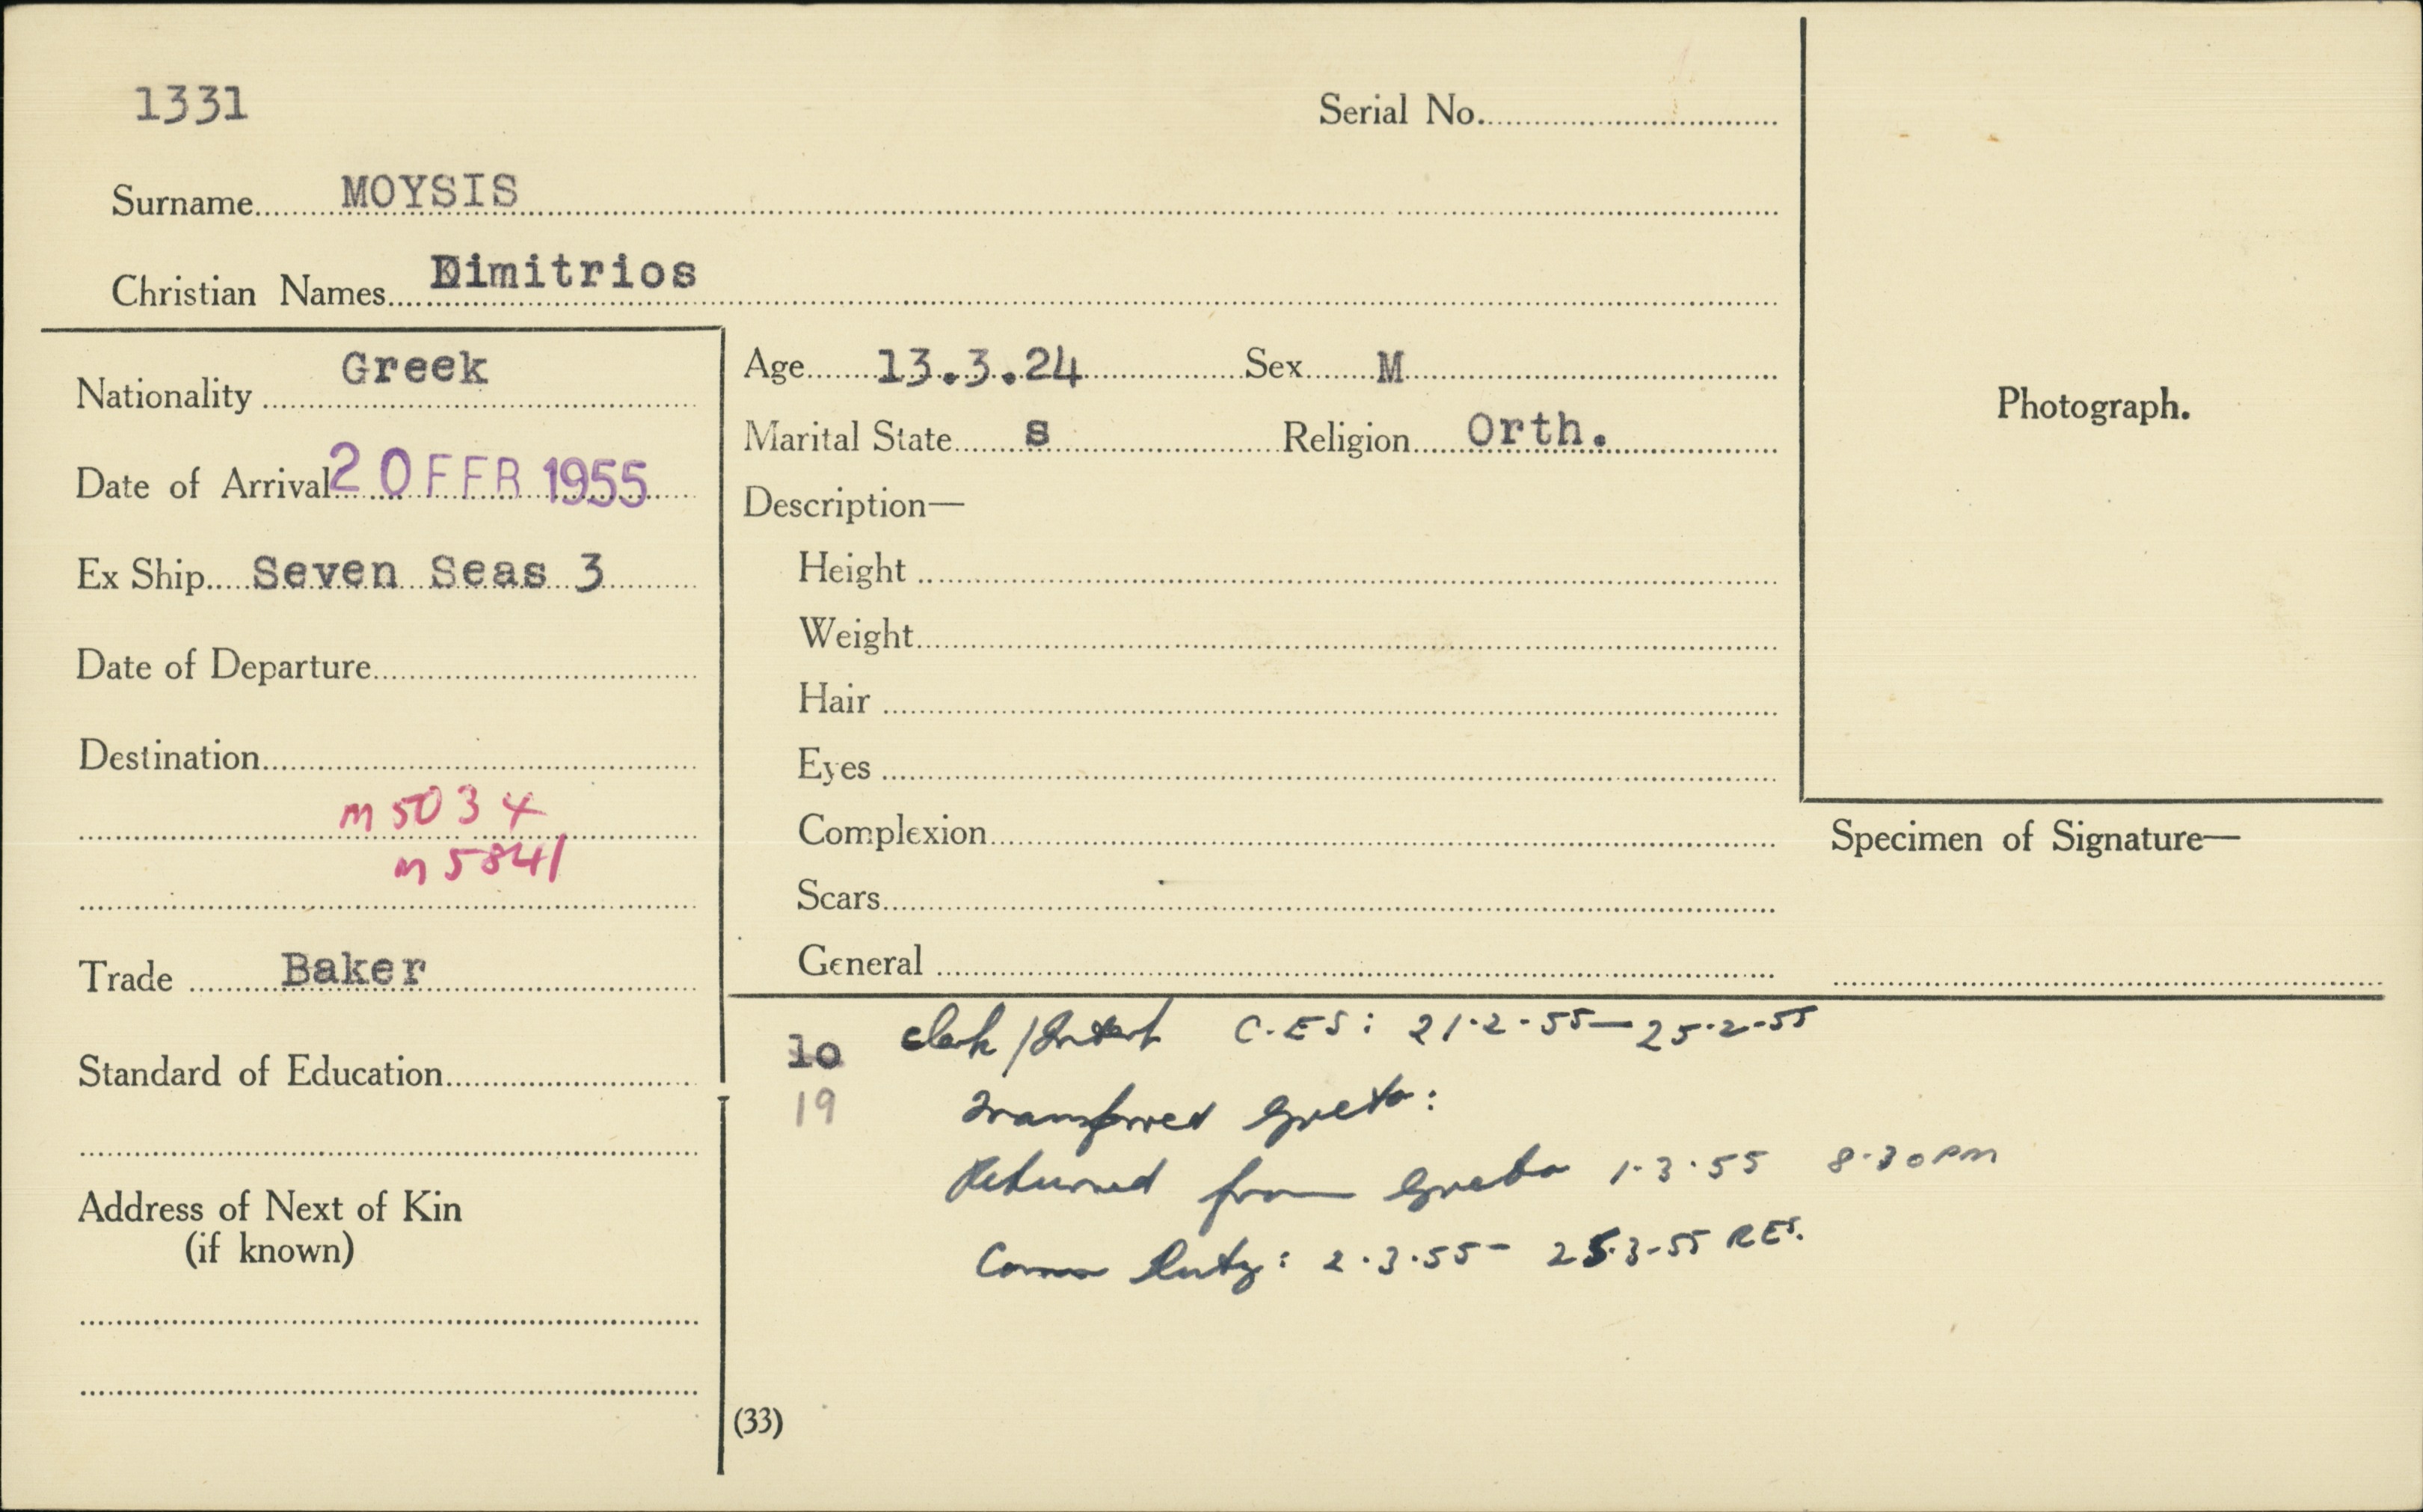 1331
Serial No.
Surname MOYSIS
Christian Names Dimitrios
Nationality Greek
Date of Arrival 20 FEB 1955
Ex Ship Seven Seas 3
Date of Departure
Destination
M 5034
M 5841
Trade Baker
Standard of Education
Address of Next of Kin
(if known)
Age 13.3.24 Sex M
Marital State S Religion Orth.
Description—
Height
Weight
Hair
Eyes
Complexion
Scars
General
Photograph.
Specimen of Signature—
10 Clerk / C.E.S: 21.2.55 — 25.2.55
19 Transferred Greta:
Returned from Greta 1.3.55 8.30 PM
Comm Duty: 2.3.55 - 25.3.55 RES.
(33)